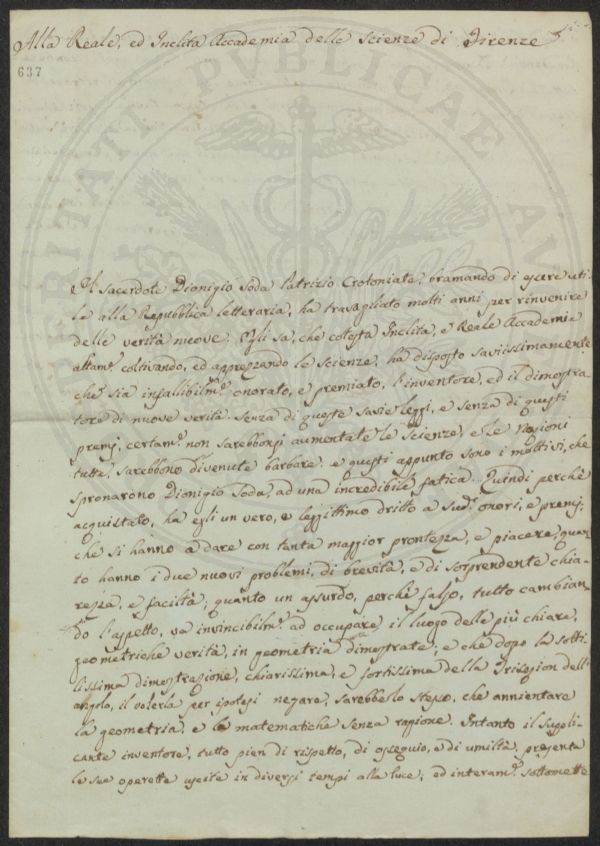 Alla Reale, ed Inclita Accademia delle Scienze di Firenze
637
PVBLICAE
Il Sacerdote Dionigio Soda Patrizio Crotoniata, bramando di essere uti-
le alla Repubblica letteraria, ha travagliato molti anni per rinvenire
delle verità nuove. Egli sa, che cotesta Inclita, e Reale Accademia
altamᵉ coltivando, ed apprezzando le scienze, ha disposto saviissimamente
che sia infallibilmᵉ onorato, e premiato, l'inventore, ed il dimostra-
tore di nuove verità. Senza di queste savie leggi, e senza di questi
premj, certamᵉ non sarebbonsi aumentate le scienze, e le Nazioni
tutte, sarebbono divenute barbare. e questi appunto sono i motivi, che
spronarono Dionigio Soda, ad una incredibile fatica. Quindi perchè
acquistato, ha egli un vero, e leggittimo dritto a sudᵗ onori, e premj;
che si hanno a dare con tanta maggior prontezza, e piacere, quan-
to hanno i due nuovi problemi, di brevità, e di sorprendente chia-
rezza, e facilità; quanto un assurdo, perchè falso, tutto cambian-
do l'aspetto, va invincibilmᵉ ad occupare il luogo delle più chiare,
geometriche verità, in geometria dimostrate, e che dopo la sotti-
lissima dimostrazione, chiarissima, e fortissima della Trisezion dell'
angolo, il volerla per ipotesi negare, sarebbe lo stesso, che annientare
la geometria, e le matematiche senza ragione. Intanto il suppli-
cante inventore, tutto pien di rispetto, di ossequio, e di umiltà, presenta
le sue operette uscite in diversi tempi alla luce, ed interamᵉ sottomette